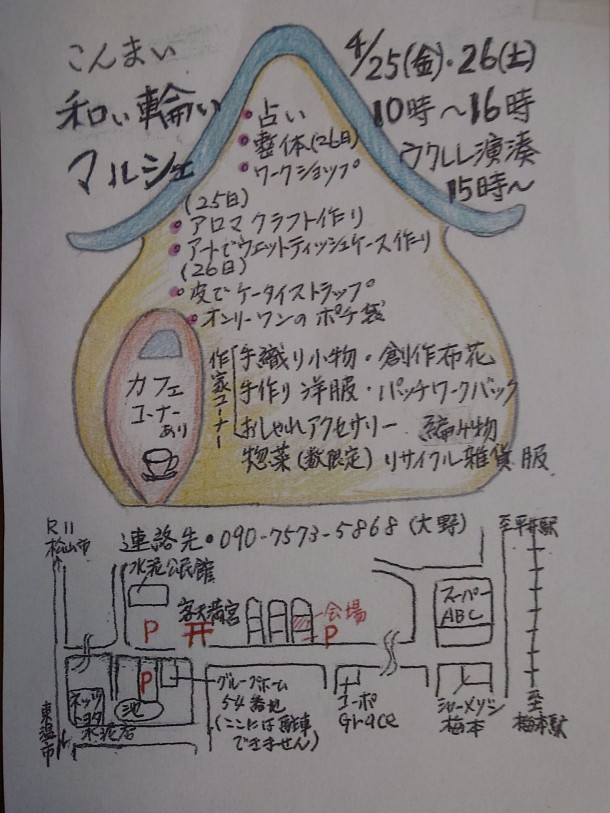 こんまい
和い輪い
マルシェ
4/25(金)・26(土)
10時～16時
ウクレレ演湊
15時～
・占い
・整体(26日)
・ワークショップ
(25日)
・アロマクラフト作り
・アートでウェットティッシュケース作り
(26日)
・皮でケータイストラップ
・オンリーワンのポチ袋
カフェ
コーナー
あり
作家コーナー
手織り小物・創作布花
手作り洋服・パッチワークバック
おしゃれアクセサリー 編み物
惣菜(数限定)リサイクル雑貨服
連絡先・090-7573-5868(大野)
R11
松山市
水泥公民館
至平井駅
P
客天満宮
会場
P
スーパー
ABC
ネッツ
トヨタ
P
池
グループホーム
54番地
(ここには駐車
できません)
コーポ
Grace
シャーメゾン
梅本
至
梅本駅
東温市